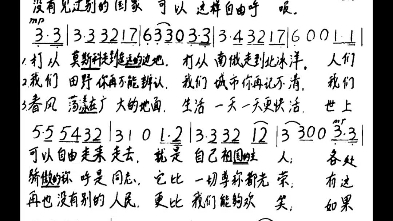 没有见过别的国家 可以 这样自由呼 吸。
mp
3·3 | 3·3 3217 | 63303·3 | 3·43217 | 6001·1 |
1.打从 莫斯科走到遥远的边地，打从 南俄走到北冰洋。 人们
2.我们 田野你再不能辨认，我们 城市你再记不清， 我们
3.春风 荡漾在广大的地面， 生活 一天一天更快活， 世上
mf
5·5 5432 | 3101·2 | 3·332 12 | 3 3003·3 |
可以自由走来走去， 就是 自己祖国的主 人； 各处
骄傲的称 呼是同志， 它比 一切尊称都光 荣， 有这
再也没有别的人民， 更比 我们能够欢 笑， 如果